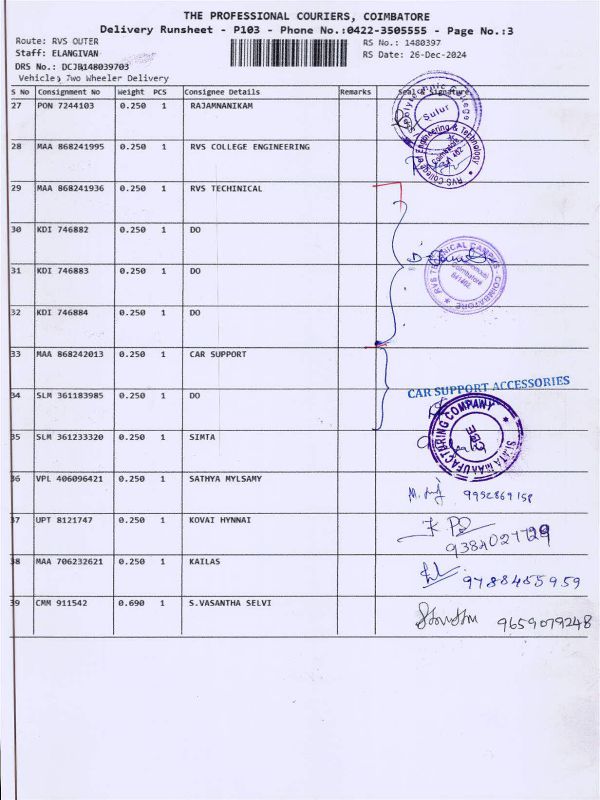 THE PROFESSIONAL COURIERS, COIMBATORE
Delivery Runsheet - P103 - Phone No.:0422-3505555 - Page No.:3
Route: RVS OUTER
RS No.: 1480397
Staff: ELANGIVAN
RS Date: 26-Dec-2024
DRS No.: DCJB148039703
Vehicle: Two Wheeler Delivery
S No Consignment No Weight PCS Consignee Details Remarks Seal & Signature
27 PON 7244103 0.250 1 RAJAMNANIKAM
Sulur
28 MAA 868241995 0.250 1 RVS COLLEGE ENGINEERING
RVS College of Engineering & Technology
29 MAA 868241936 0.250 1 RVS TECHINICAL
30 KDI 746882 0.250 1 DO
31 KDI 746883 0.250 1 DO
RVS TECHNICAL CAMPUS COIMBATORE
Coimbatore
641402
32 KDI 746884 0.250 1 DO
33 MAA 868242013 0.250 1 CAR SUPPORT
CAR SUPPORT ACCESSORIES
34 SLM 361183985 0.250 1 DO
SIMTA MANUFACTURING COMPANY
CBE
35 SLM 361233320 0.250 1 SIMTA
36 VPL 406096421 0.250 1 SATHYA MYLSAMY
9952869158
37 UPT 8121747 0.250 1 KOVAI HYNNAI
38 MAA 706232621 0.250 1 KAILAS
9788455959
39 CMM 911542 0.690 1 S.VASANTHA SELVI
9659079248